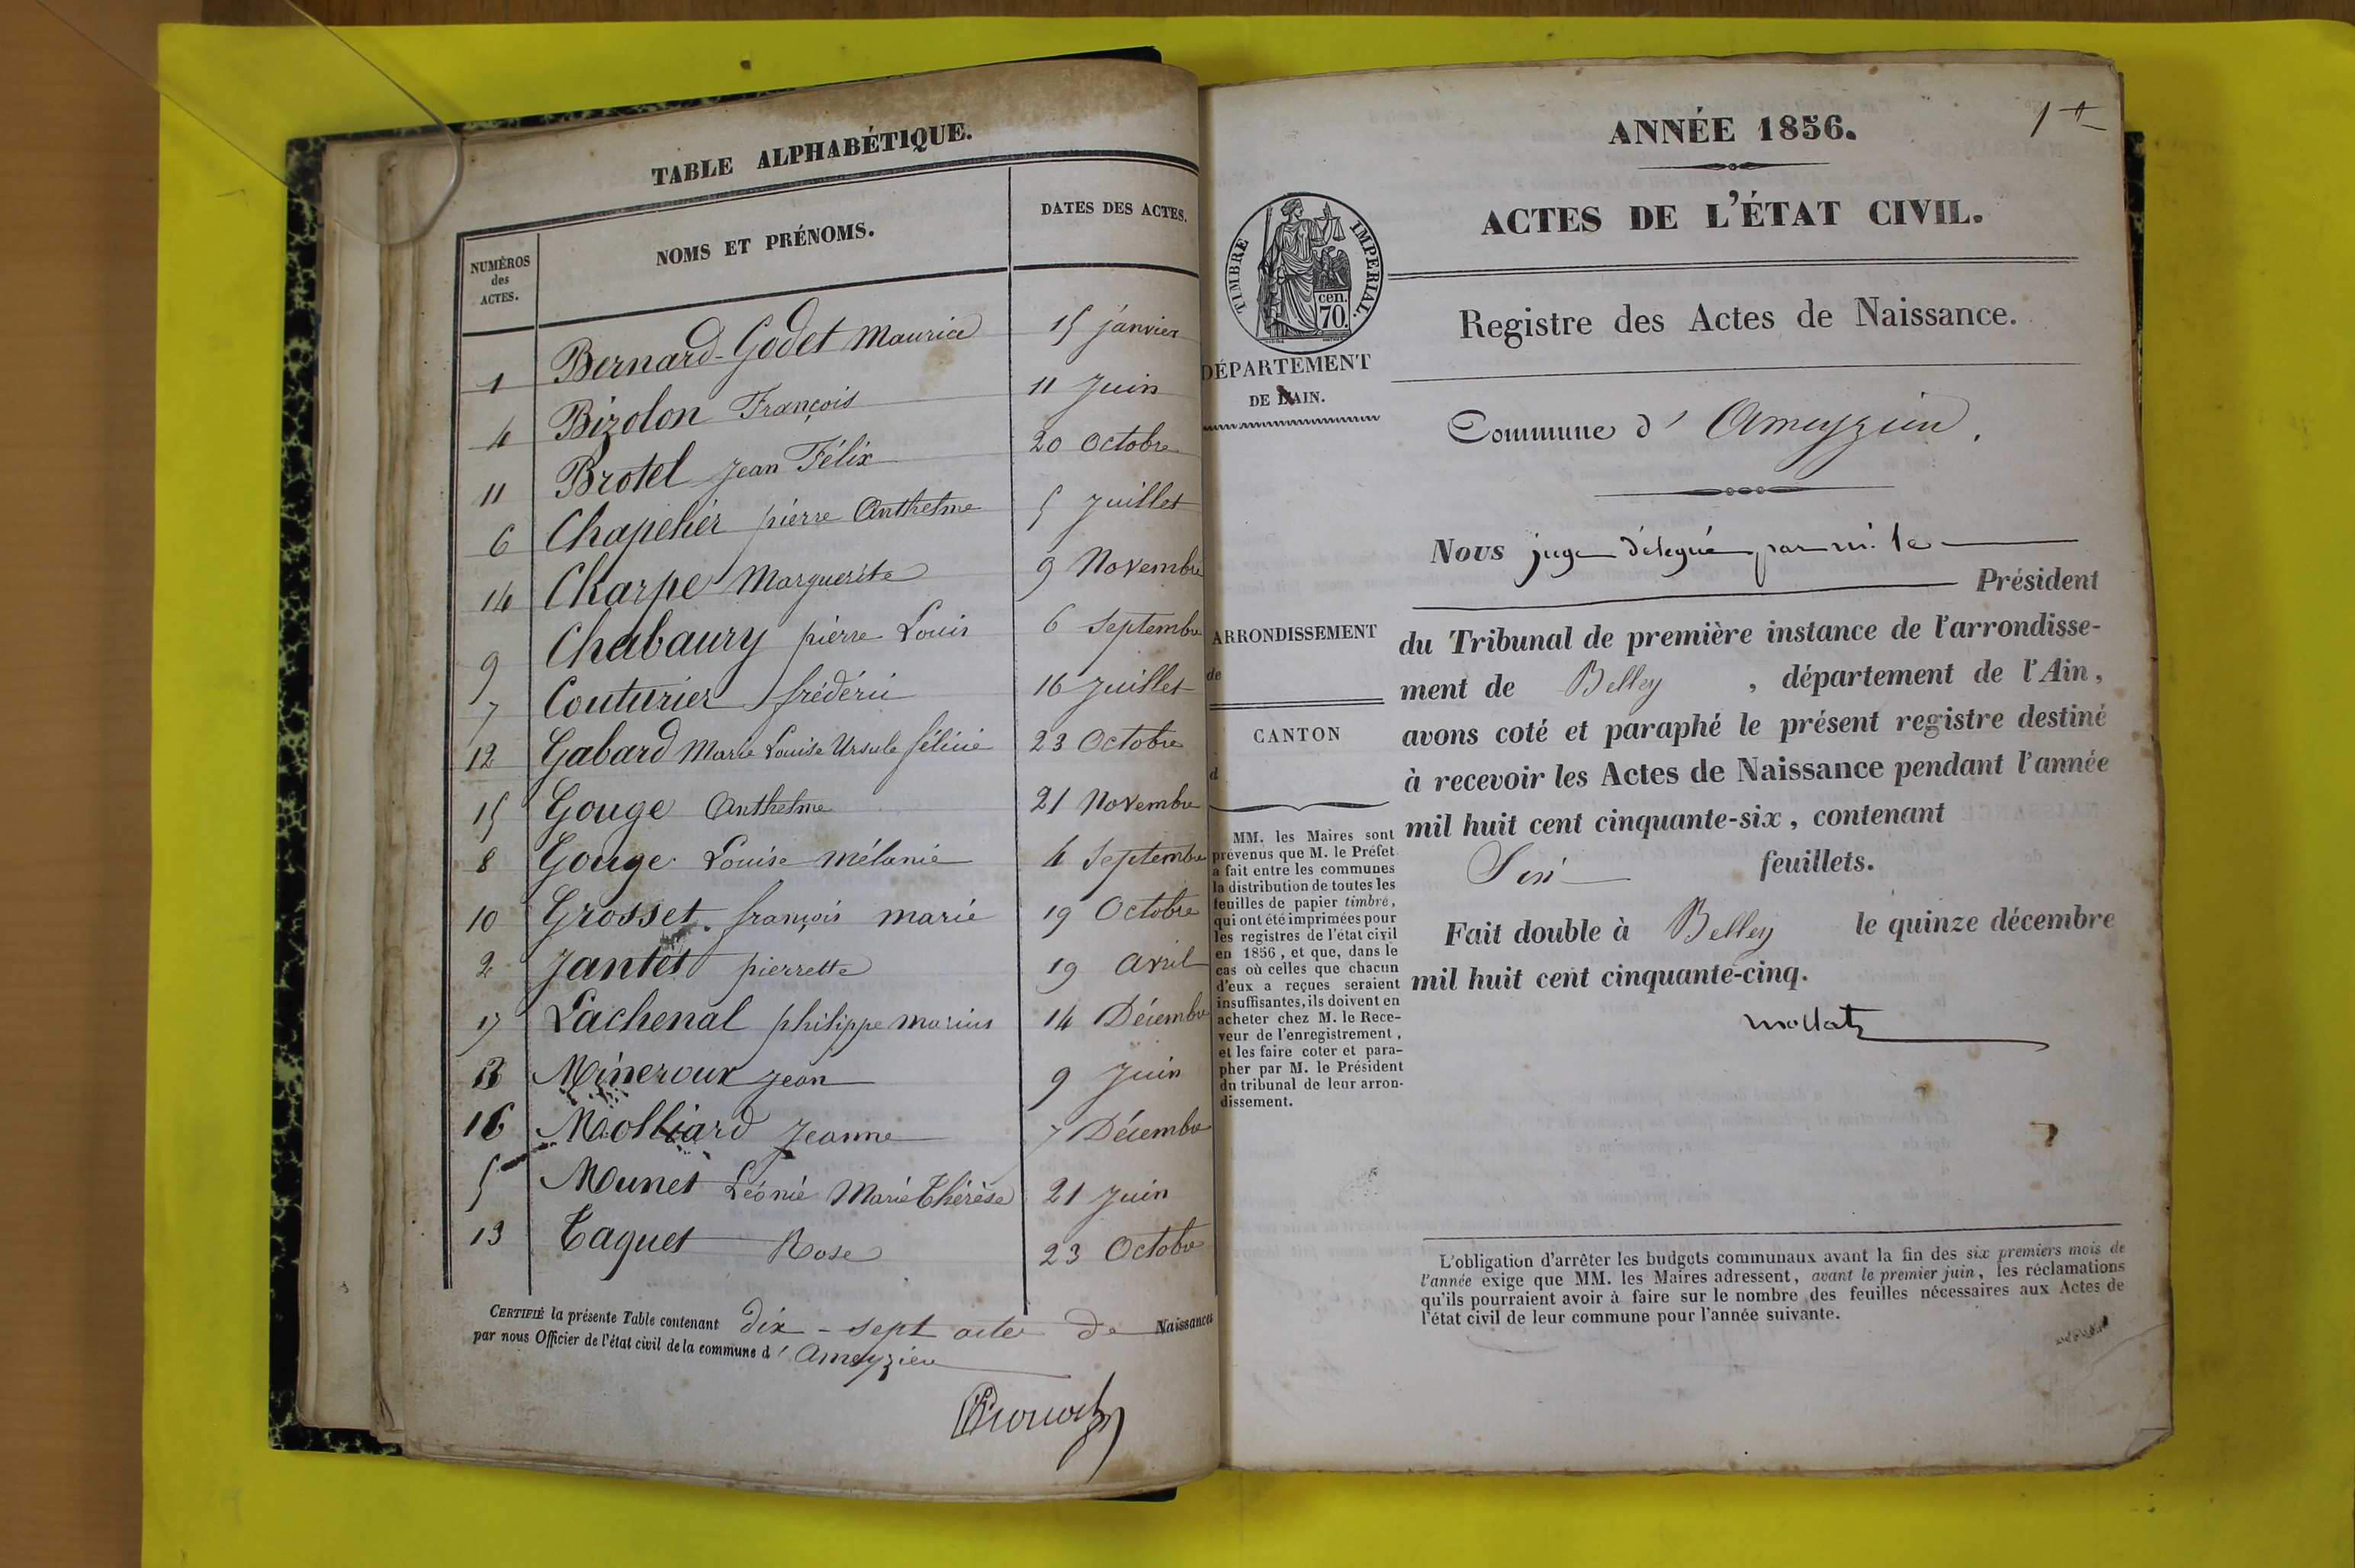 TABLE ALPHABÉTIQUE.
NUMÉROS des ACTES. NOMS ET PRÉNOMS. DATES DES ACTES.
1 Bernard-Godet Maurice 15 janvier
4 Bizolon François 11 Juin
11 Brotel Jean Félix 20 Octobre
6 Chapelier pierre Anthelme 5 Juillet
14 Charpe Marguerite 9 Novembre
9 Chabaury pierre Louis 6 Septembre
7 Couturier frédéric 16 Juillet
12 Gabard Marie Louise Ursule féliċie 23 Octobre
15 Gouge Anthelme 21 Novembre
8 Gouge Louise mélanie 4 Septembre
10 Grosset françois marie 19 Octobre
2 Jantet pierrette 19 avril
17 Lachenal philippe marius 14 Décembre
3 Mineroux Jean 9 Juin
16 Molliard Jeanne 7 Décembre
5 Munet Léonie Marie Thérèse 21 Juin
13 Taquet Rose 23 Octobre
CERTIFIÉ la présente Table contenant dix-sept actes de Naissances
par nous Officier de l'état civil de la commune d'Ameyzieu
ANNÉE 1856.
ACTES DE L'ÉTAT CIVIL.
TIMBRE IMPERIAL.
cen.
70.
DÉPARTEMENT
DE L'AIN.
ARRONDISSEMENT
de
CANTON
d
MM. les Maires sont
prévenus que M. le Préfet
a fait entre les communes
la distribution de toutes les
feuilles de papier timbré,
qui ont été imprimées pour
les registres de l'état civil
en 1856, et que, dans le
cas où celles que chacun
d'eux a reçues seraient
insuffisantes, ils doivent en
acheter chez M. le Rece-
veur de l'enregistrement,
et les faire coter et para-
pher par M. le Président
du tribunal de leur arron-
dissement.
Registre des Actes de Naissance.
Commune d'Ameyzieu.
Nous juge délégué par m. le
Président
du Tribunal de première instance de l'arrondisse-
ment de Belley, département de l'Ain,
avons coté et paraphé le présent registre destiné
à recevoir les Actes de Naissance pendant l'année
mil huit cent cinquante-six, contenant
Six feuillets.
Fait double à Belley le quinze décembre
mil huit cent cinquante-cinq.
L'obligation d'arrêter les budgets communaux avant la fin des six premiers mois de
l'année exige que MM. les Maires adressent, avant le premier juin, les réclamations
qu'ils pourraient avoir à faire sur le nombre des feuilles nécessaires aux Actes de
l'état civil de leur commune pour l'année suivante.